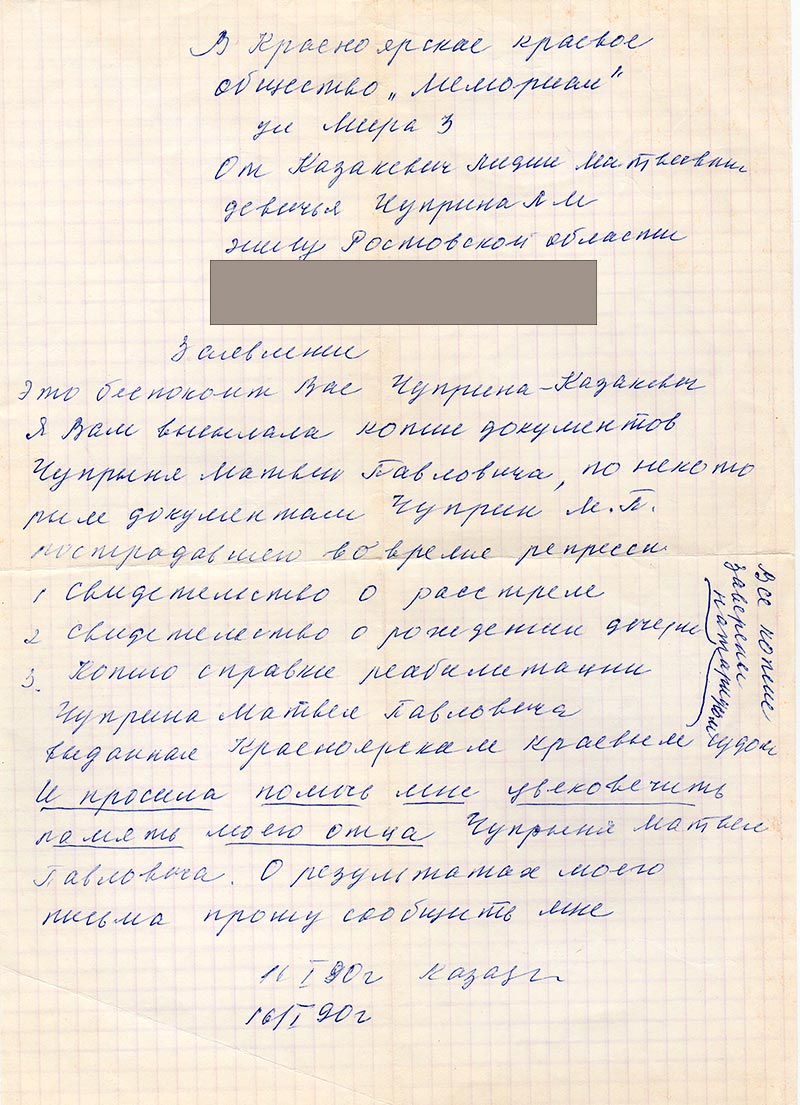 В Красноярское краевое
общество „Мемориал"
ул Мира 3
От Казакевич Лидии Матвеевны
девичья Чуприна Л М
живу Ростовской области
Заявление
Это беспокоит Вас Чуприна-Казакевич
Я Вам высылала копие документов
Чупрыня Матвея Павловича, по некото
рым документам Чуприн М.П.
пострадавшего во время репресси
1 Свидетельство о расстреле
2 Свидетелество о рождении дочери
3. Копию справки реабилитации
Чуприна Матвея Павловича
выданная Красноярским краевым судом
И просила помочь мне увековечить
память моего отца Чупрыня Матвея
Павловича. О результатах моего
письма прошу сообщить мне
16 I 90г
16/I 90г
Все копие
заверены
натариусом